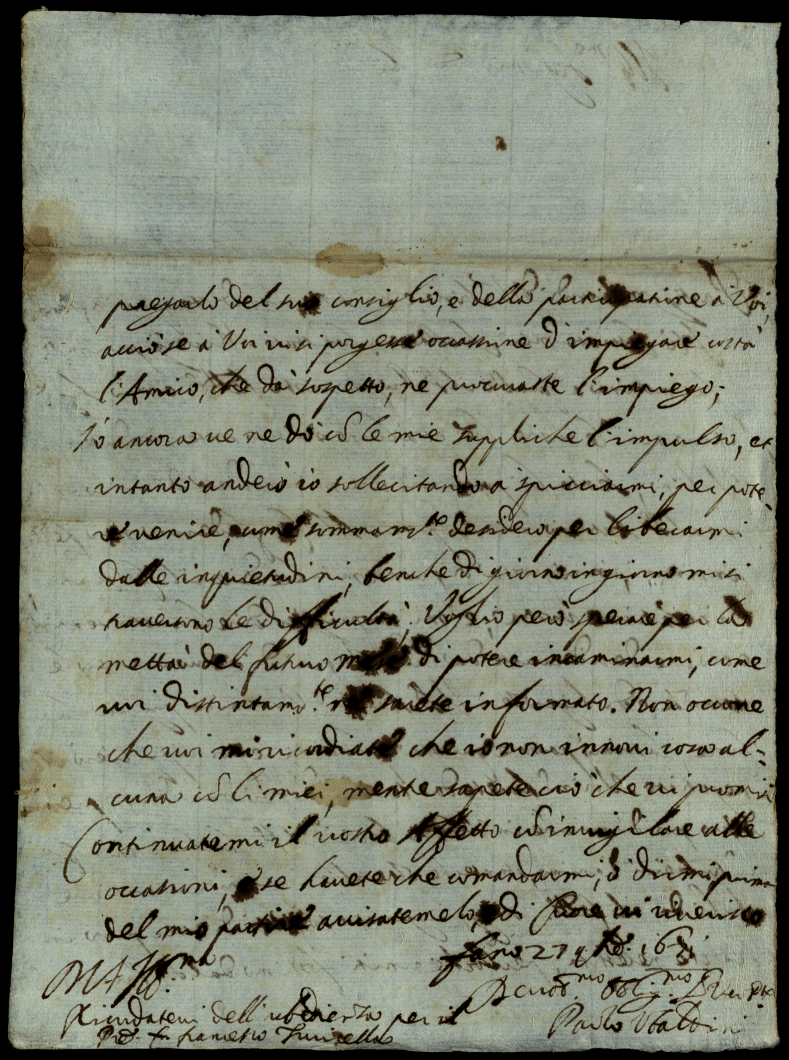 pregarlo del suo consiglio, e della participatione à Voi,
acciò se à Voi visi porgesse occassione d'impiegare costà
l'Amico, che dà sospetto, ne procuraste l'impiego;
Io ancora ve ne dò cõ le mie suppliche l'impulso, et
intanto anderò io sollecitando a spicciarmi, per pote-
re venire, come sommam.te desidero per liberarmi
dalle inquietudini, benche di giorno in giorno mi si
traversino le difficultà, Voglio però sperare per la
mettà del futuro mese di potere incaminarmi, come
voi distintam.te ne sarete informato. Non occorre
che voi mi ricordiate che io non innovi cosa al-
cuna cõ li miei, mentre sapete ciò che vi promisi
Continuatemi il vostro Affetto cõ invigilare alle
occasioni, e se havete che comandarmi, ò dirmi prima
del mio partire avisatemelo, di core vi riverisco
Fano 27 9bre 167
Devot.mo Obl.mo
Ricordatevi dell'ubidienza per il
P.re fr. francesco
Paolo Ubaldini